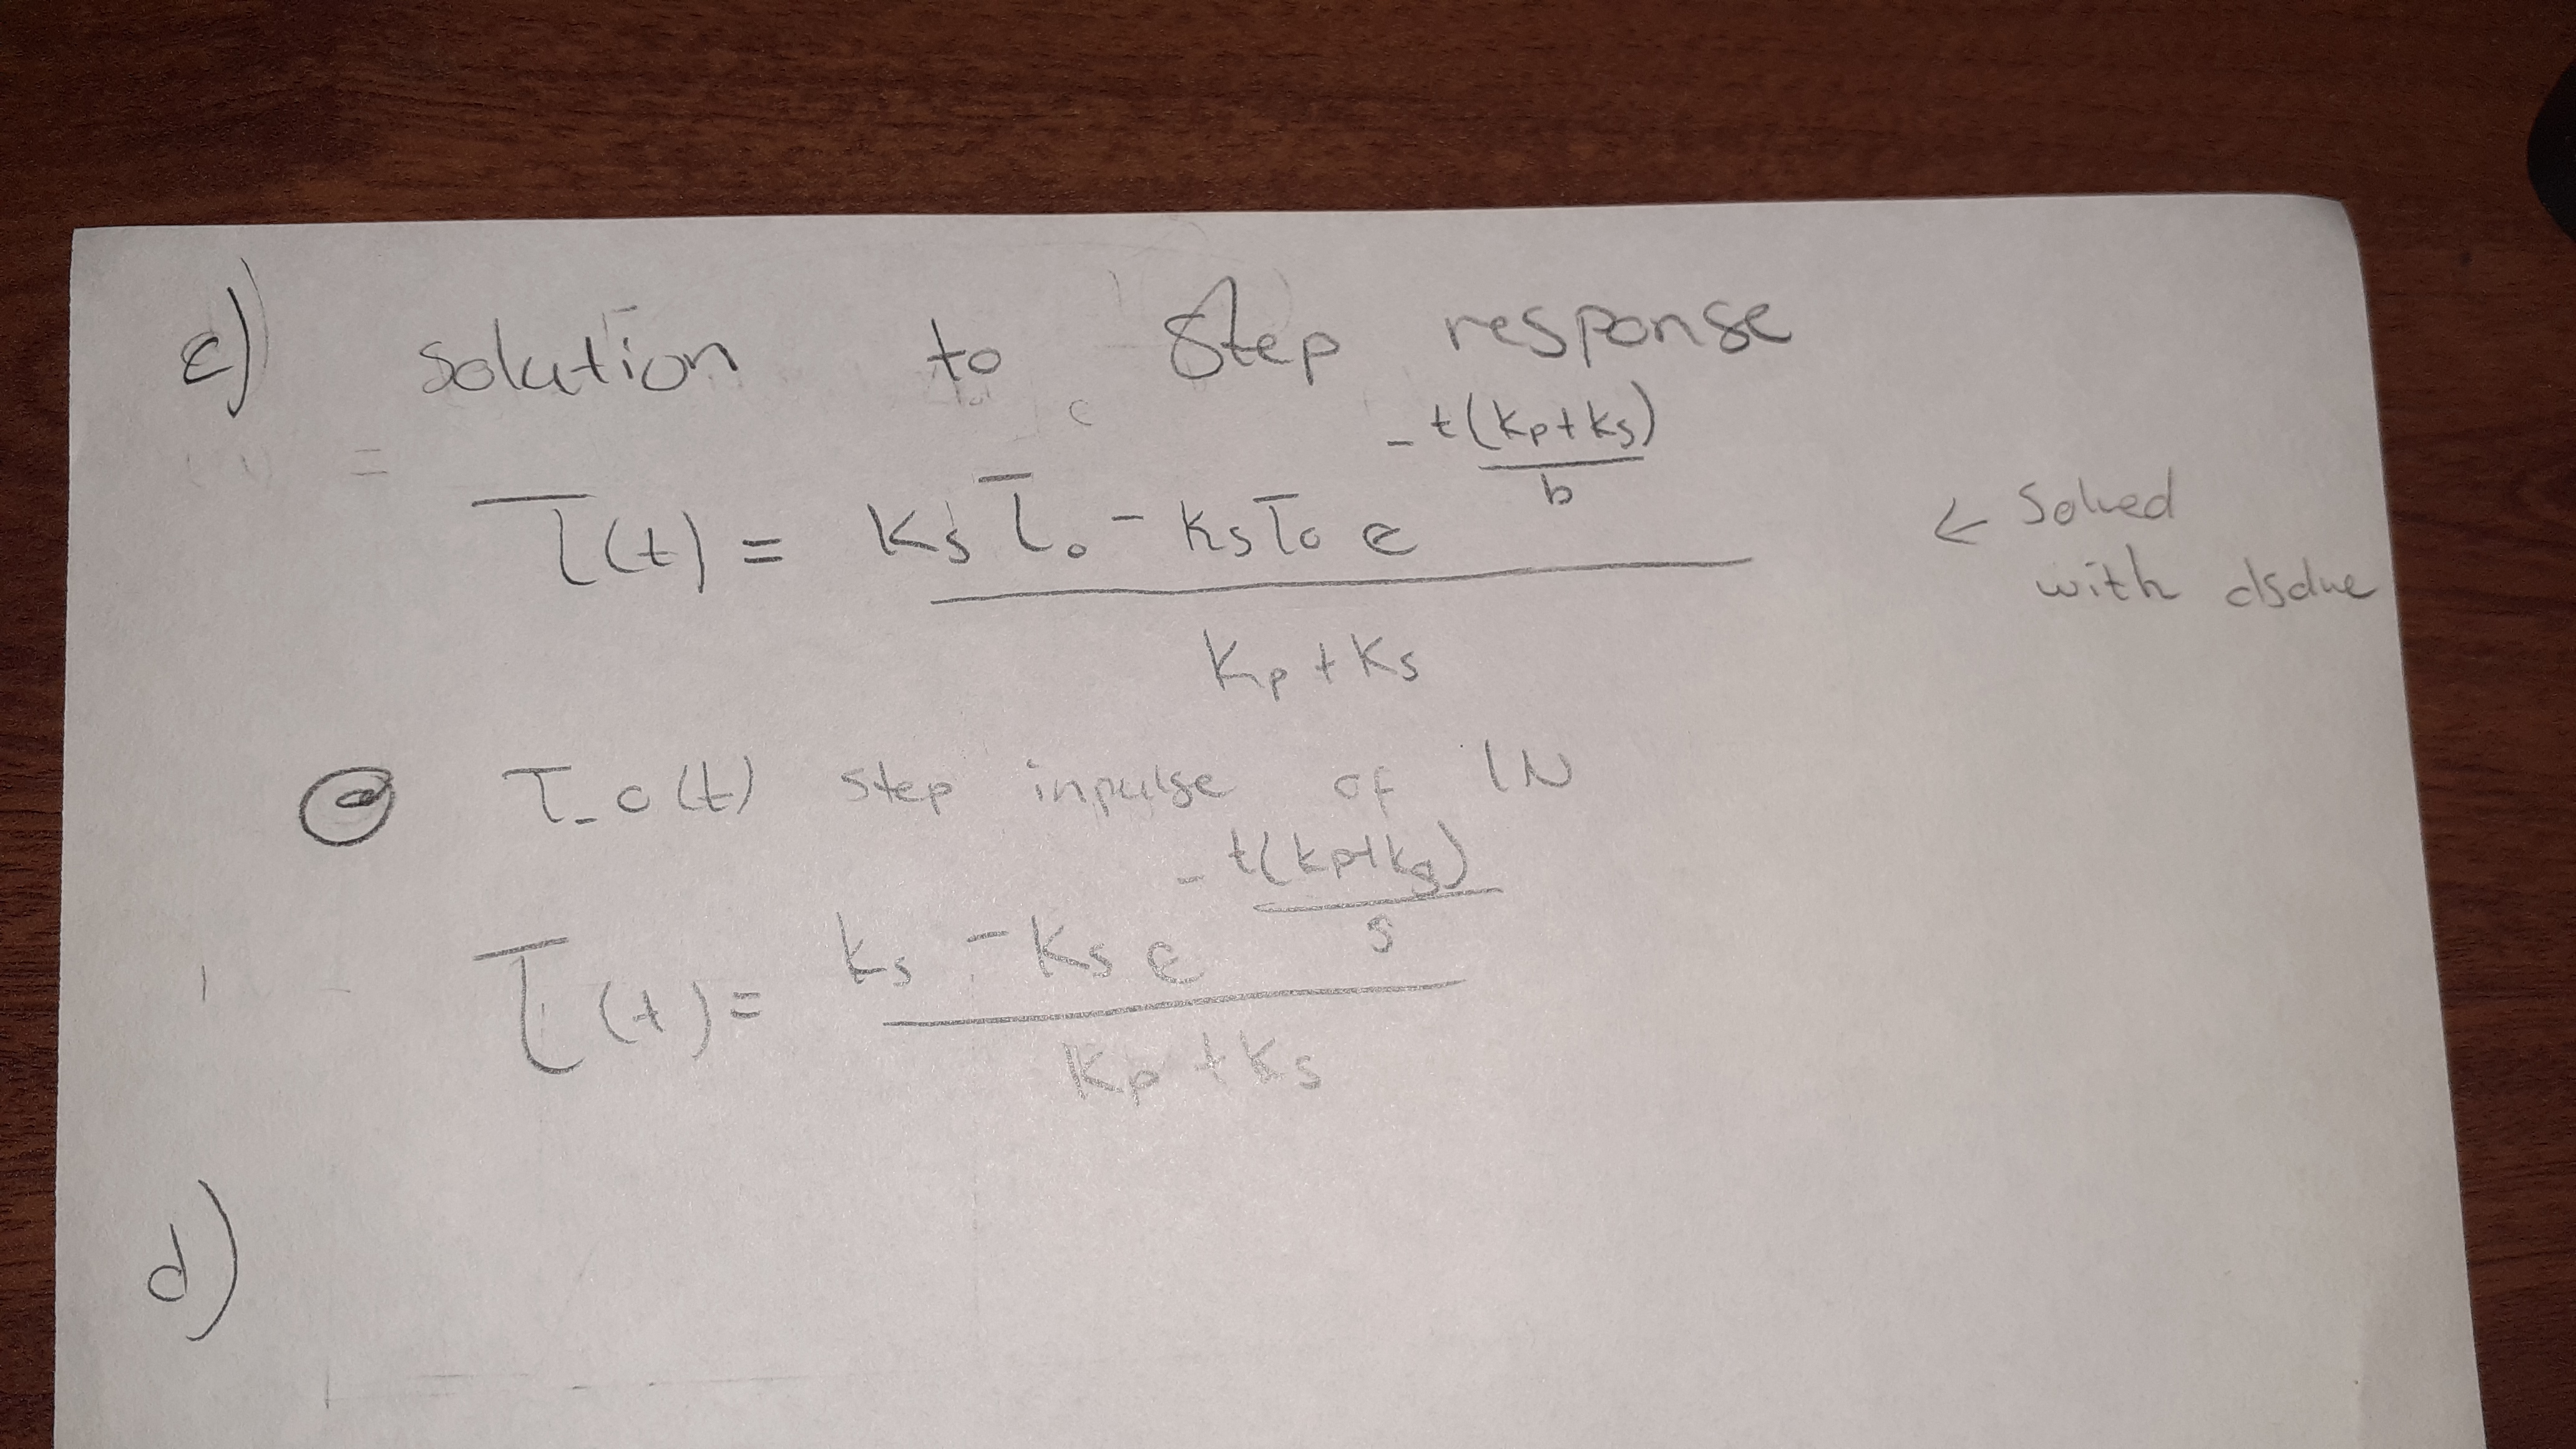 c) Solution to Step response
T(t) = (KsT₀ - KsT₀e^(-t(Kp+Ks)/b)) / (Kp+Ks)
← Solved
with dsolve
@ T_o(t) step inpulse of 1N
T(t) = (Ks - Kse^(-t(Kp+Ks)/s)) / (Kp+Ks)
d)